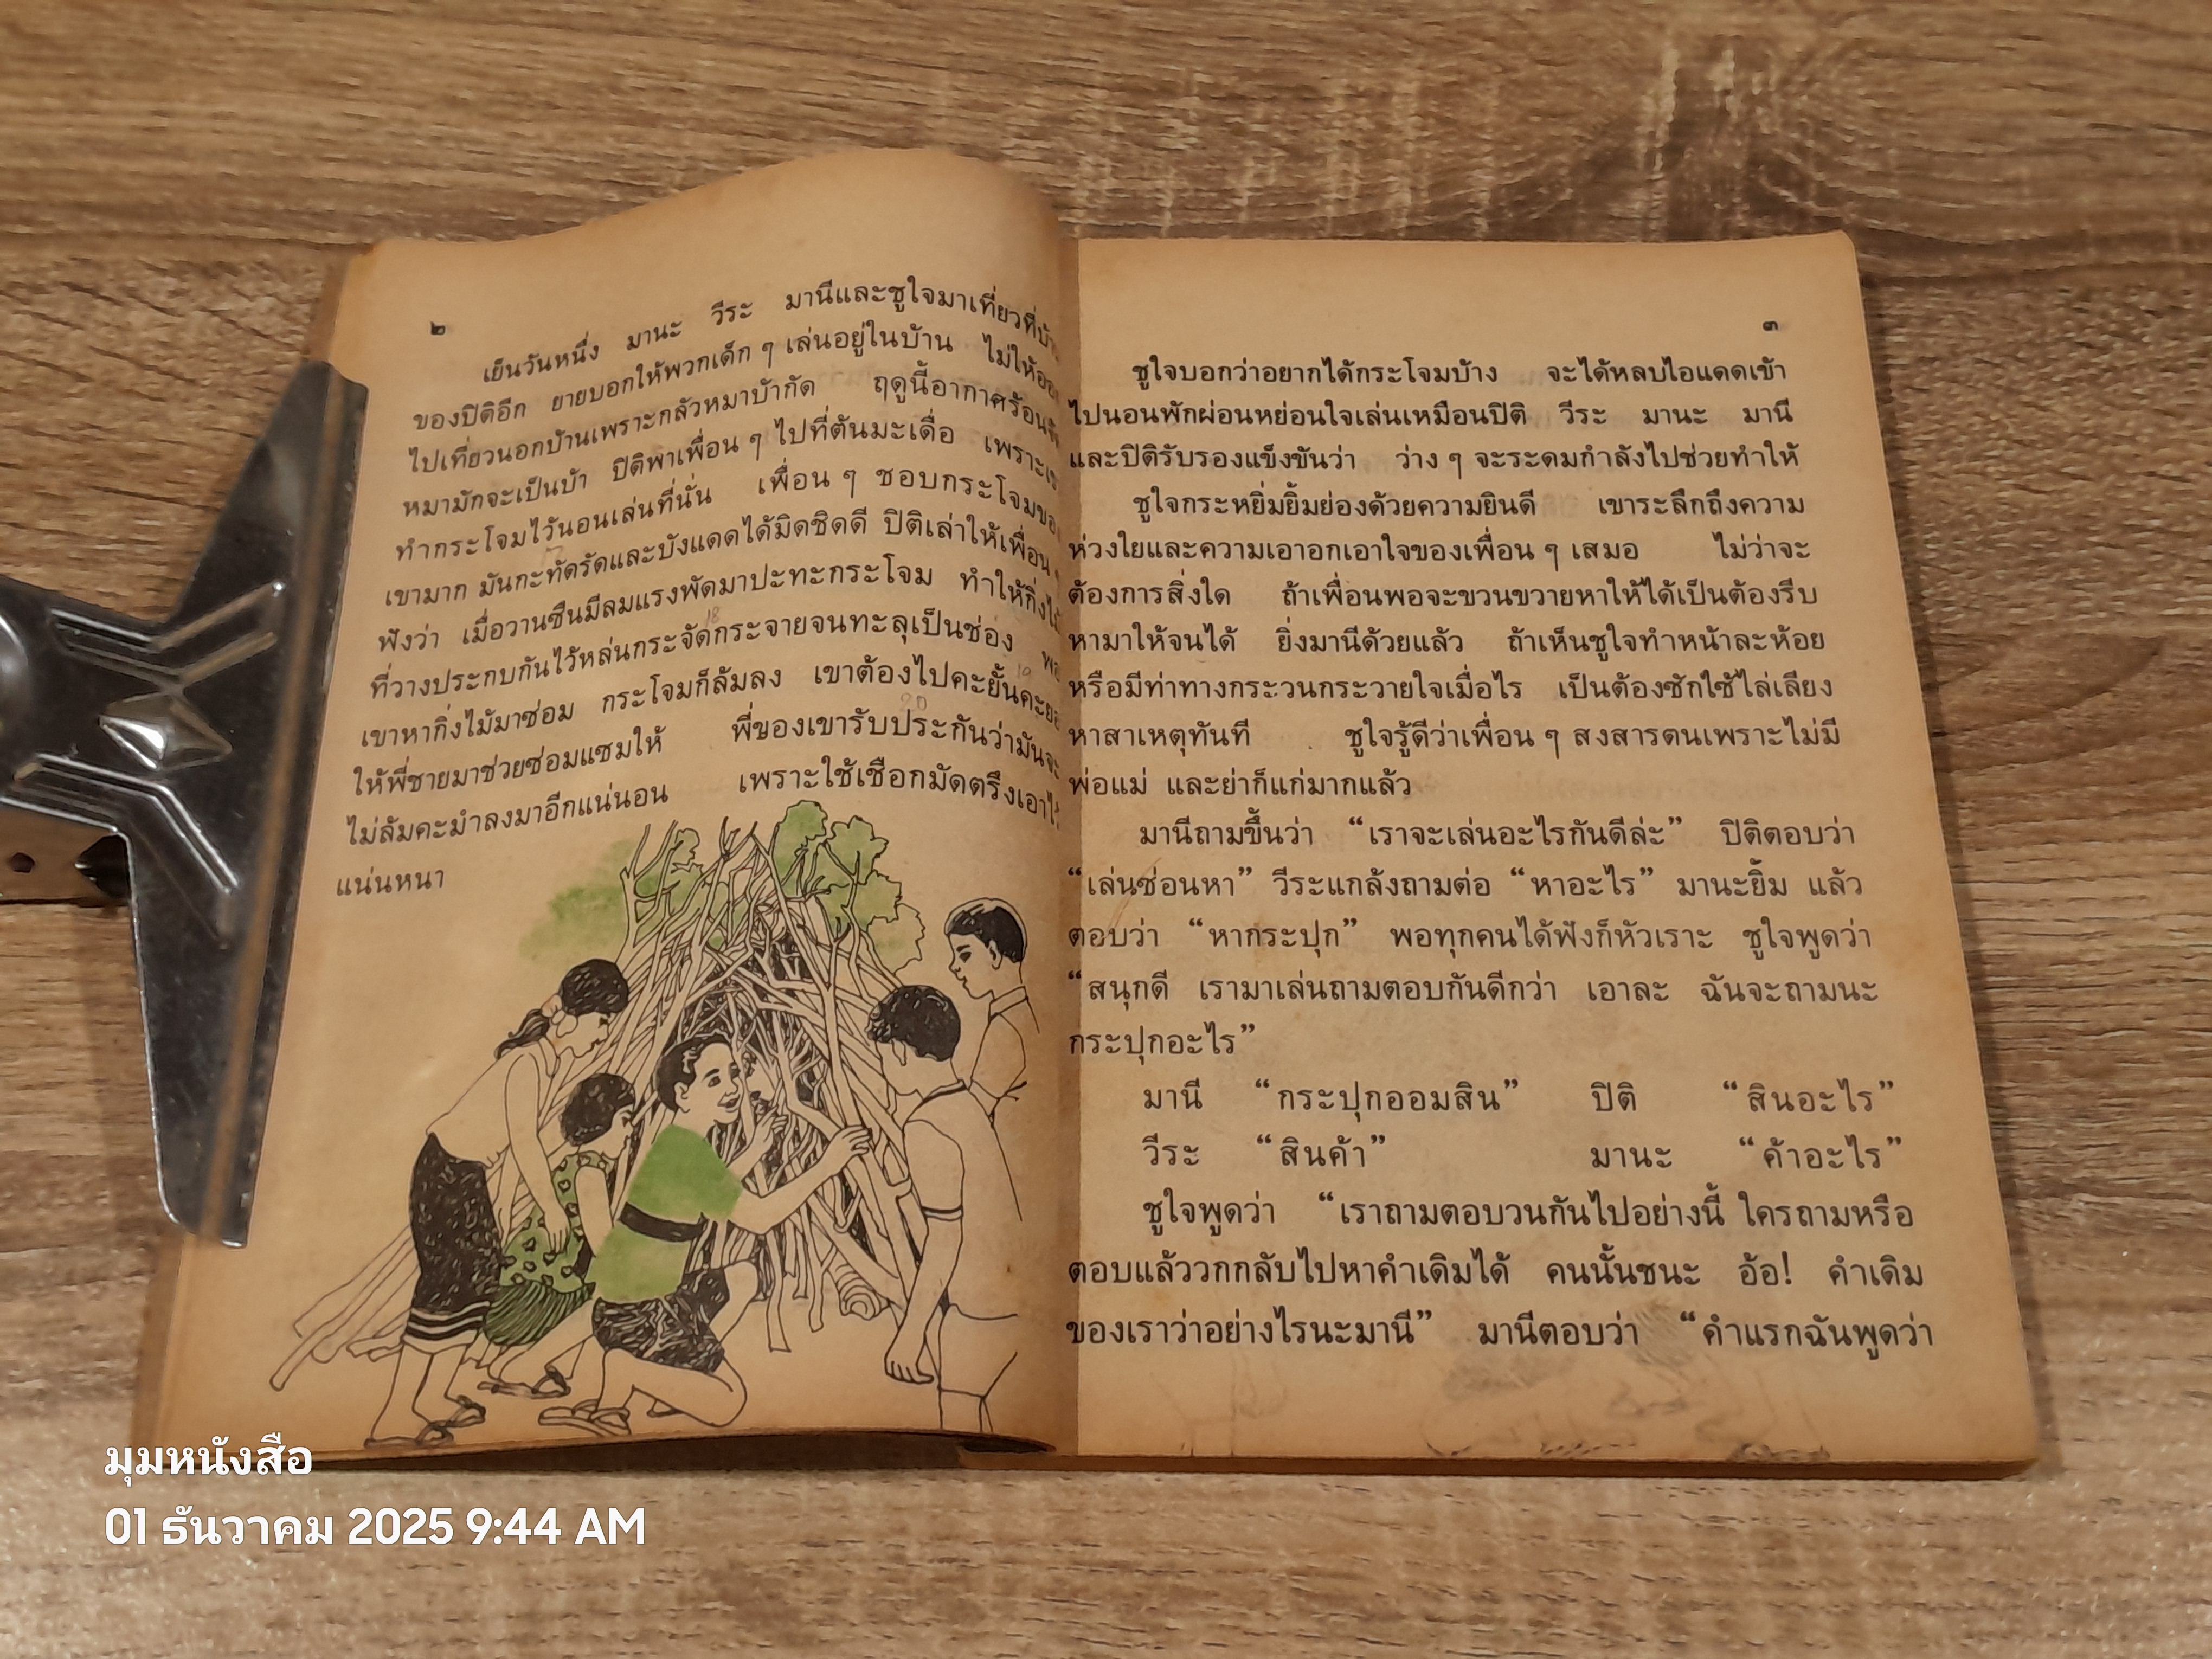 ๒
เย็นวันหนึ่ง มานะ วีระ มานีและชูใจมาเที่ยวที่บ้าน
ของปิติอีก ยายบอกให้พวกเด็ก ๆ เล่นอยู่ในบ้าน ไม่ให้ออก
ไปเที่ยวนอกบ้านเพราะกลัวหมาบ้ากัด ฤดูนี้อากาศร้อน
หมามักจะเป็นบ้า ปิติพาเพื่อน ๆ ไปที่ต้นมะเดื่อ เพราะ
ทำกระโจมไว้นอนเล่นที่นั่น เพื่อน ๆ ชอบกระโจมของ
เขามาก มันกะทัดรัดและบังแดดได้มิดชิดดี ปิติเล่าให้เพื่อน
ฟังว่า เมื่อวานซืนมีลมแรงพัดมาปะทะกระโจม ทำให้กิ่งไม้
ที่วางประกบกันไว้หล่นกระจัดกระจายจนทะลุเป็นช่อง พอ
เขาหากิ่งไม้มาซ่อม กระโจมก็ล้มลง เขาต้องไปคะยั้นคะยอ
ให้พี่ชายมาช่วยซ่อมแซมให้ พี่ของเขารับประกันว่ามันจะ
ไม่ล้มคะมำลงมาอีกแน่นอน เพราะใช้เชือกมัดตรึงเอาไว้
แน่นหนา
๓
ชูใจบอกว่าอยากได้กระโจมบ้าง จะได้หลบไอแดดเข้า
ไปนอนพักผ่อนหย่อนใจเล่นเหมือนปิติ วีระ มานะ มานี
และปิติรับรองแข็งขันว่า ว่าง ๆ จะระดมกำลังไปช่วยทำให้
ชูใจกระหยิ่มยิ้มย่องด้วยความยินดี เขาระลึกถึงความ
ห่วงใยและความเอาอกเอาใจของเพื่อน ๆ เสมอ ไม่ว่าจะ
ต้องการสิ่งใด ถ้าเพื่อนพอจะขวนขวายหาให้ได้เป็นต้องรีบ
หามาให้จนได้ ยิ่งมานีด้วยแล้ว ถ้าเห็นชูใจทำหน้าละห้อย
หรือมีท่าทางกระวนกระวายใจเมื่อไร เป็นต้องซักใช้ไล่เลียง
หาสาเหตุทันที ชูใจรู้ดีว่าเพื่อน ๆ สงสารตนเพราะไม่มี
พ่อแม่ และย่าก็แก่มากแล้ว
มานีถามขึ้นว่า “เราจะเล่นอะไรกันดีล่ะ” ปิติตอบว่า
“เล่นซ่อนหา” วีระแกล้งถามต่อ “หาอะไร” มานะยิ้ม แล้ว
ตอบว่า “หากระปุก” พอทุกคนได้ฟังก็หัวเราะ ชูใจพูดว่า
“สนุกดี เรามาเล่นถามตอบกันดีกว่า เอาละ ฉันจะถามนะ
กระปุกอะไร”
มานี “กระปุกออมสิน” ปิติ “สินอะไร”
วีระ “สินค้า” มานะ “ค้าอะไร”
ชูใจพูดว่า “เราถามตอบวนกันไปอย่างนี้ ใครถามหรือ
ตอบแล้ววกกลับไปหาคำเดิมได้ คนนั้นชนะ อ้อ! คำเดิม
ของเราว่าอย่างไรนะมานี” มานีตอบว่า “คำแรกฉันพูดว่า
มุมหนังสือ
01 ธันวาคม 2025 9:44 AM